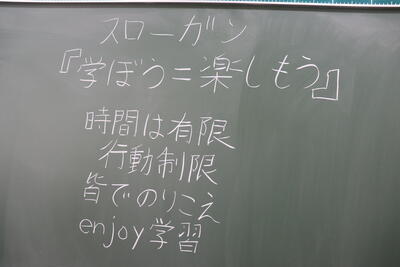 スローガン
『学ぼう=楽しもう』
時間は有限
行動制限
皆でのりこえ
enjoy学習